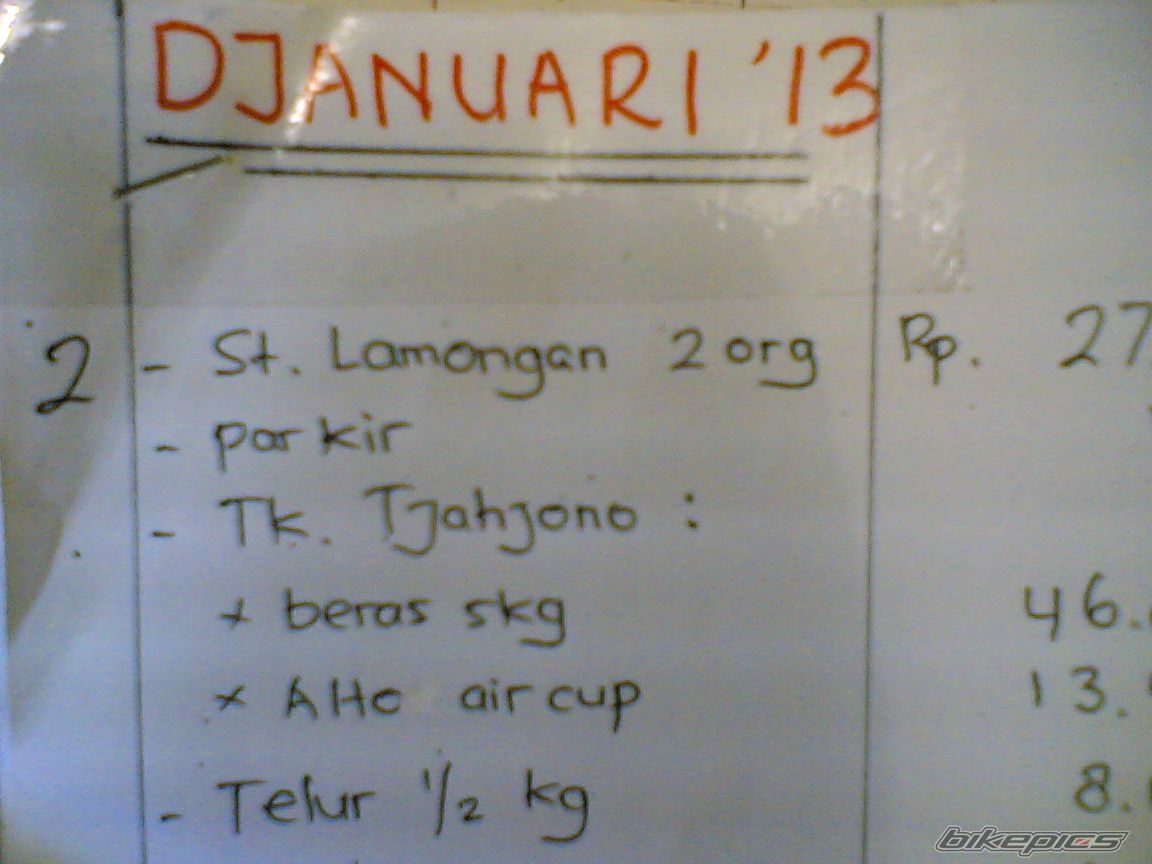 DJANUARI '13
2 - St. Lamongan 2 org Rp. 27
- parkir
- Tk. Tjahjono :
+ beras 5kg 46.
x AHC air cup 13.
- Telur 1/2 kg 8.
bikepics